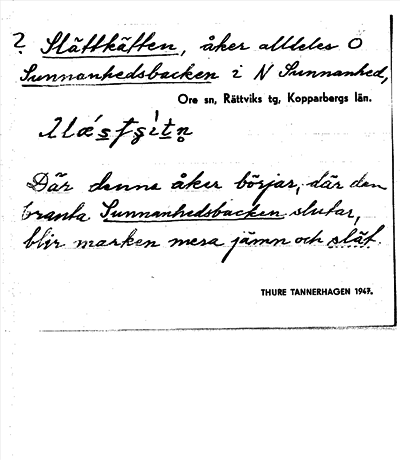 ? Slättkätten, åker alldeles O
Sunnanhedsbacken i N Sunnanhed,
Ore sn, Rättviks tg, Kopparbergs län.
Där denna åker börjar, där den
branta Sunnanhedsbacken slutar,
blir marken mera jämn och slät.
THURE TANNERHAGEN 1947.